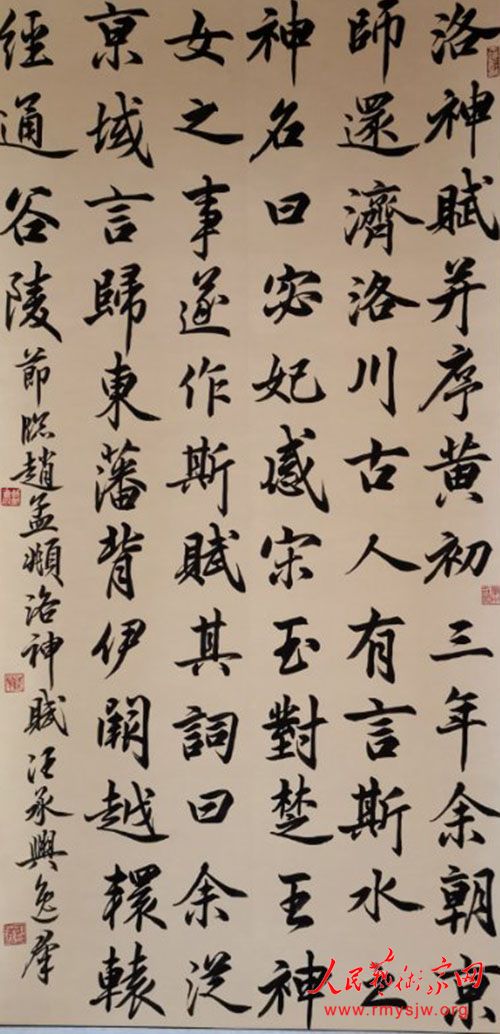 洛神賦并序黄初三年余朝京
師還濟洛川古人有言斯水之
神名曰宓妃感宋玉對楚王神
女之事遂作斯賦其詞曰余從
京域言歸東藩背伊闕越轘轅
經通谷陵
節臨趙孟頫洛神賦汪承興逸羣
人民藝術家网
www.rmysjw.com